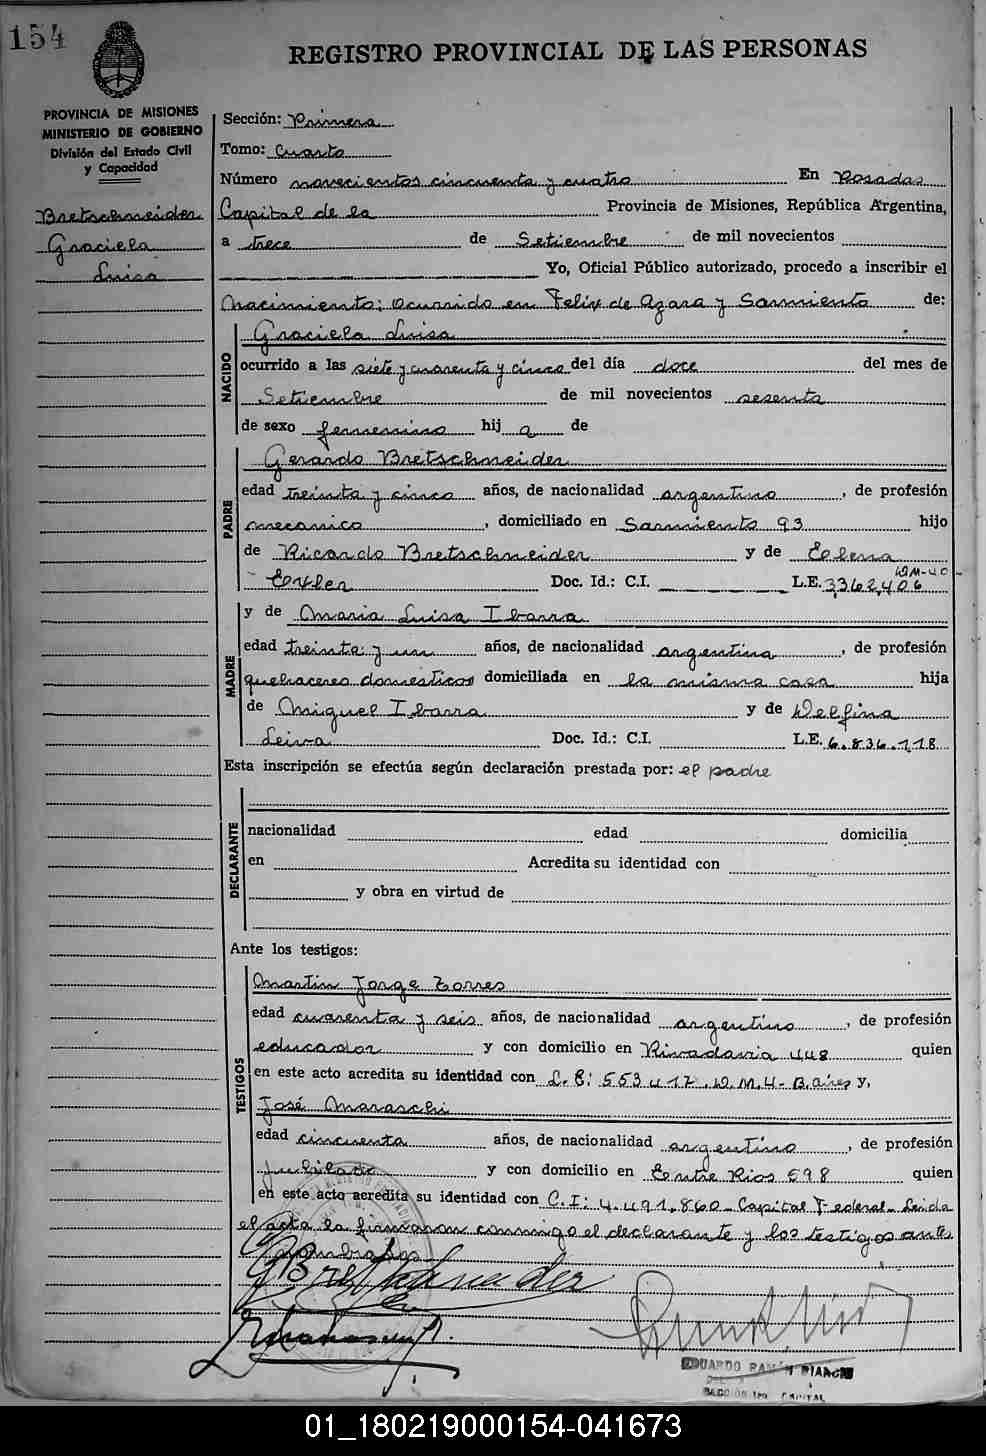 154
REGISTRO PROVINCIAL DE LAS PERSONAS
PROVINCIA DE MISIONES
MINISTERIO DE GOBIERNO
División del Estado Civil
y Capacidad
Bretschneider
Graciela
Luisa
Sección: Primera
Tomo: Cuarto
Número novecientos cincuenta y cuatro En Posadas
Capital de la Provincia de Misiones, República Argentina,
a trece de Setiembre de mil novecientos
Yo, Oficial Público autorizado, procedo a inscribir el
Nacimiento: ocurrido en Felix de Azara y Sarmiento de:
NACIDO
Graciela Luisa
ocurrido a las siete y cuarenta y cinco del día doce del mes de
Setiembre de mil novecientos sesenta
de sexo femenino hij a de
PADRE
Gerardo Bretschneider
edad treinta y cinco años, de nacionalidad argentino, de profesión
mecanico, domiciliado en Sarmiento 93 hijo
de Ricardo Bretschneider y de Elena
Doc. Id.: C.I. L.E. 3,362,406 DM-40
MADRE
y de Maria Luisa Ibarra
edad treinta y un años, de nacionalidad argentina, de profesión
quehaceres domesticos domiciliada en la misma casa hija
de Miguel Ibarra y de Delfina
Leiva Doc. Id.: C.I. L.E. 6.836.118
Esta inscripción se efectúa según declaración prestada por: el padre
DECLARANTE
nacionalidad edad domicilia
en Acredita su identidad con
y obra en virtud de
Ante los testigos:
TESTIGOS
Martin Jorge Torres
edad cuarenta y seis años, de nacionalidad argentino, de profesión
educador y con domicilio en Rivadavia 448 quien
en este acto acredita su identidad con L.E: 553417. D.M.4- B.aires y,
José Maraschi
edad cincuenta años, de nacionalidad argentino, de profesión
Jubilado y con domicilio en Entre Rios 598 quien
en este acto acredita su identidad con C.I: 4.491.860 - Capital Federal - Leida
el acta la firmaron conmigo el declarante y los testigos antes
nombrados
GBretschneider
EDUARDO RAMÓN
01_180219000154-041673